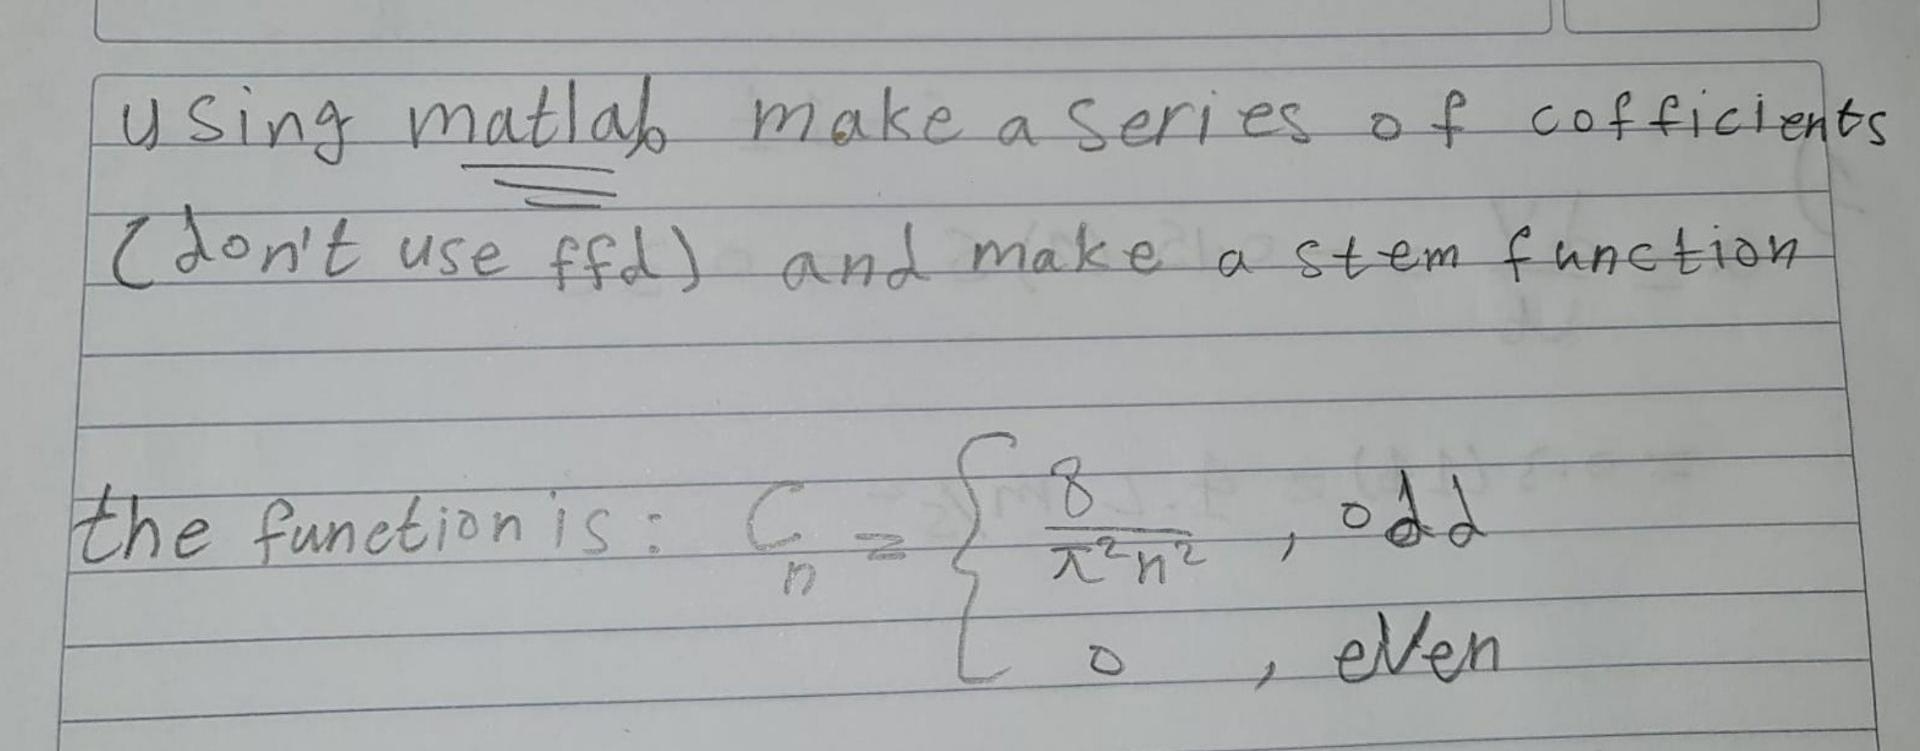 using matlab make a series of cofficients
(don't use ffd) and make a stem function
the function is: C_n = { 8/(π²n²) , odd
0 , even